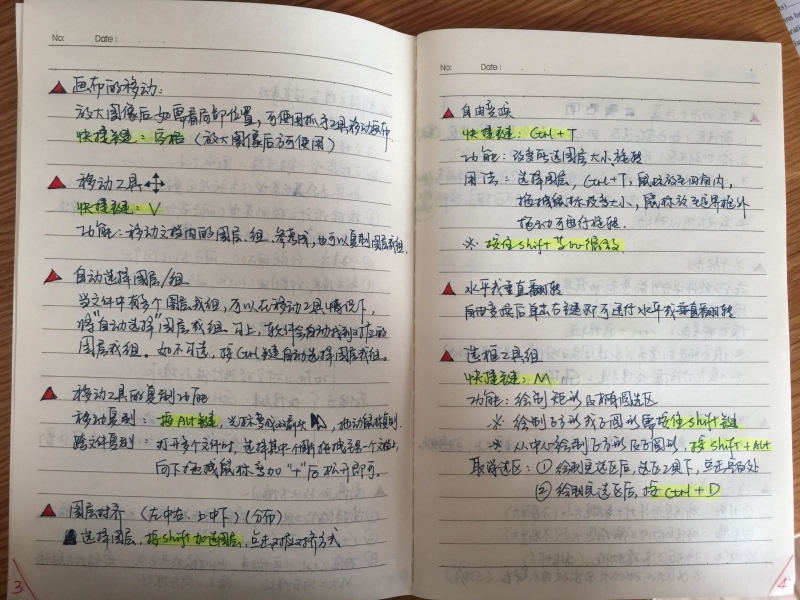 No:
Date:
画布的移动:
放大图像后如需看局部位置，可使用抓手工具移动画布
快捷键：空格（放大图像后方可使用）
移动工具
快捷键：V
功能：移动文档内的图层、组、参考线，也可以复制图层或组.
自动选择图层/组
当文件中有多个图层或组，可以在移动工具情况下，
将"自动选择"图层或组勾上，软件会自动找到对应的
图层或组。如不勾选，按Ctrl键自动选择图层或组。
移动工具的复制功能
移动复制：按Alt键，光标变成双箭头，拖动鼠标复制.
跨文件复制：打开多个文件时，选择其中一个图层拖拽至另一个文档上，
向下拖拽鼠标变加"+"后松开即可。
图层对齐（左中右、上中下）（分布）
选择图层，按shift加选图层，点击对应对齐方式
3
No:
Date:
自由变换
快捷键：Ctrl+T
功能：改变所选图层大小、旋转
用法：选择图层，Ctrl+T，鼠标放至四角内，
拖拽鼠标改变大小，鼠标放至边界框外
拖动可进行旋转.
※ 按住shift等比缩放.
水平或垂直翻转
自由变换后单击右键即可进行水平或垂直翻转
选框工具组
快捷键：M
功能：绘制矩形及椭圆选区
※ 绘制正方形或正圆形需按住shift键
※ 从中心绘制正方形及正圆形，按shift+Alt
取消选区：①绘制是选区后，选区工具下，点击空白处
②绘制是选区后，按Ctrl+D
4